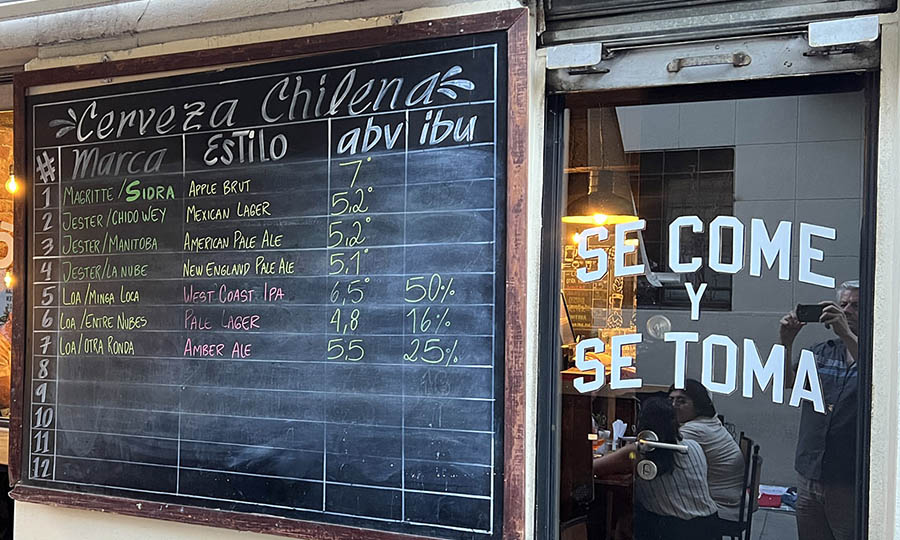 Cerveza Chilena
# Marca Estilo abv ibu
1 Magritte/Sidra Apple Brut 7°
2 Jester/Chido Wey Mexican Lager 5,2°
3 Jester/Manitoba American Pale Ale 5,2°
4 Jester/La Nube New England Pale Ale 5,1°
5 Loa/Minga Loca West Coast IPA 6,5° 50%
6 Loa/Entre Nubes Pale Lager 4,8 16%
7 Loa/Otra Ronda Amber Ale 5.5 25%
8
9
10
11
12
SE COME
Y
SE TOMA